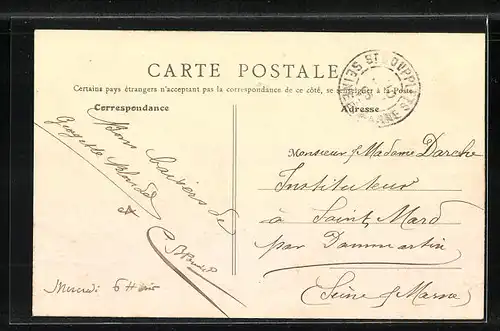 CARTE POSTALE
Certains pays étrangers n'acceptant pas la correspondance de ce côté, se renseigner à la Poste
Correspondance
Adresse
Bons baisers de
Mercredi 6 H
Monsieur & Madame Darche
Instituteur
à Saint Mard
par Dammartin
Seine & Marne